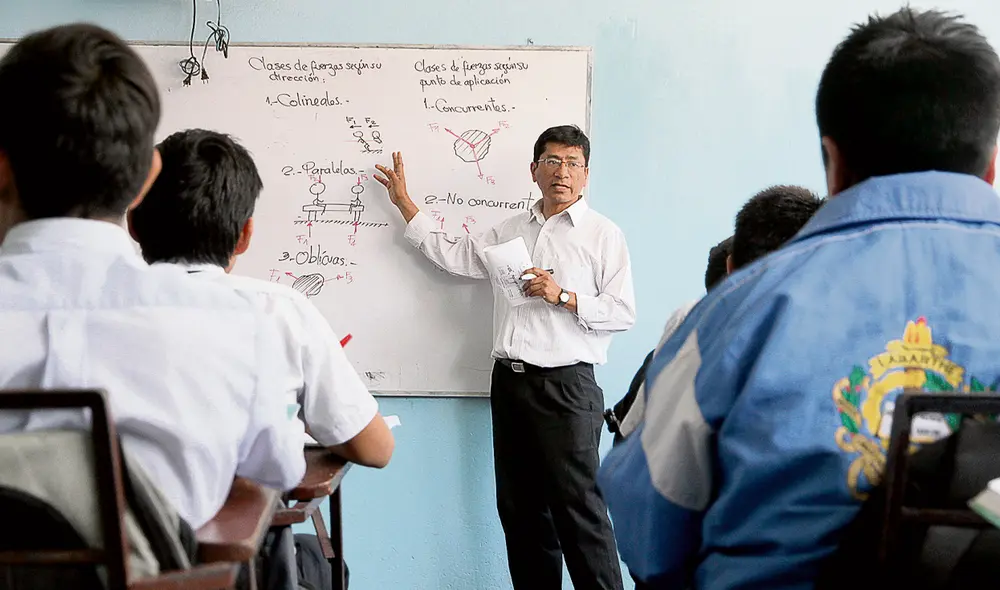 Clases de fuerzas según su
dirección:
1.- Colineales.-
F1 F2
2.- Paralelas.-
F1 F2
3.- Oblicuas.-
F3
Clases de fuerzas según su
punto de aplicación
1.- Concurrentes.-
F1 F2
F3
2.- No concurrent
F1 F2